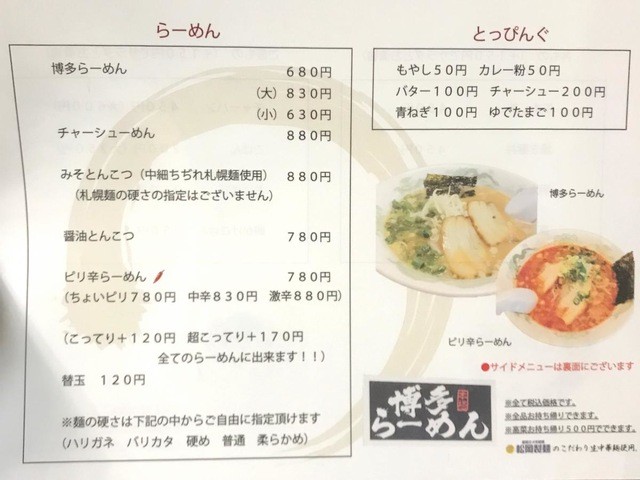 らーめん
博多らーめん 680円
(大) 830円
(小) 630円
チャーシューめん 880円
みそとんこつ (中細ちぢれ札幌麺使用) 880円
(札幌麺の硬さの指定はございません)
醤油とんこつ 780円
ピリ辛らーめん 780円
(ちょいピリ780円 中辛830円 激辛880円)
(こってり+120円 超こってり+170円
全てのらーめんに出来ます!!)
替玉 120円
※麺の硬さは下記の中からご自由に指定頂けます
(ハリガネ バリカタ 硬め 普通 柔らかめ)
とっぴんぐ
もやし50円 カレー粉50円
バター100円 チャーシュー200円
青ねぎ100円 ゆでたまご100円
博多らーめん
ピリ辛らーめん
●サイドメニューは裏面にございます
博多
らーめん
※全て税込価格です。
※全品お持ち帰りできます。
※高菜お持ち帰り500円でできます。
松岡製麺のこだわり生中華麺使用。